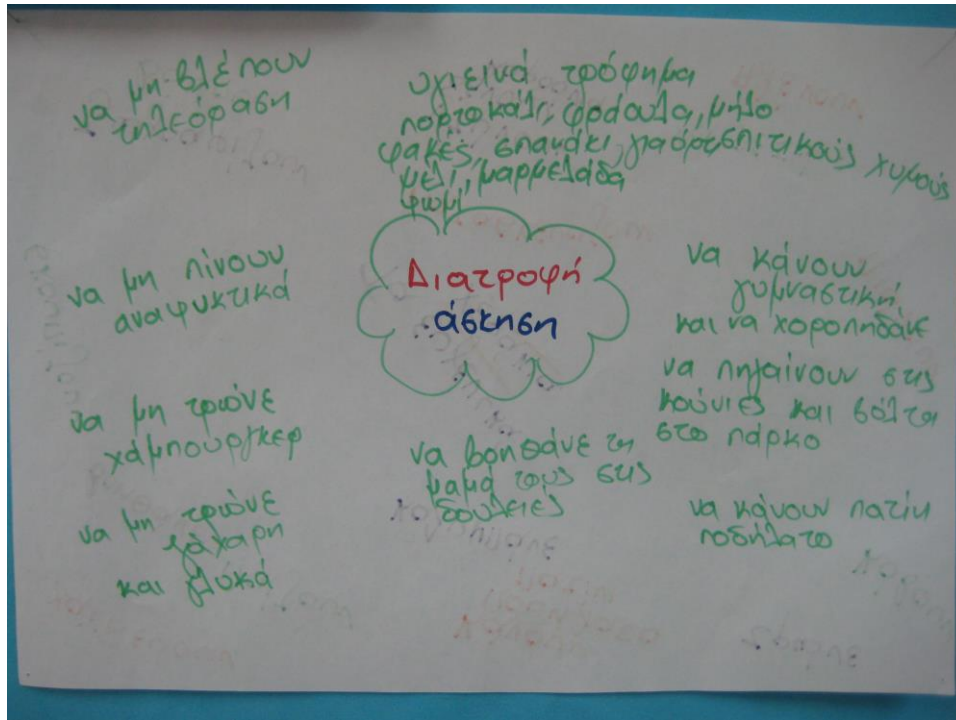 να μη βλέπουν
τηλεόραση
υγιεινά τρόφημα
πορτοκάλι, φράουλα, μήλο
φακές, σπανάκι, γιαούρτ, σπιτικούς χυμούς
μέλι, μαρμελάδα
ψωμί
Διατροφή
άσκηση
να μη πίνουν
αναψυκτικά
να κάνουν
γυμναστική
και να χοροπηδάνε
να πηγαίνουν στις
κούνιες και σάλτα
στο πάρκο
να μη τρώνε
χάμπουργκερ
να βοηθάνε τη
μαμά τους στις
δουλειές
να μη τρώνε
ζάχαρη
και γλυκά
να κάνουν πατίνι
ποδήλατο